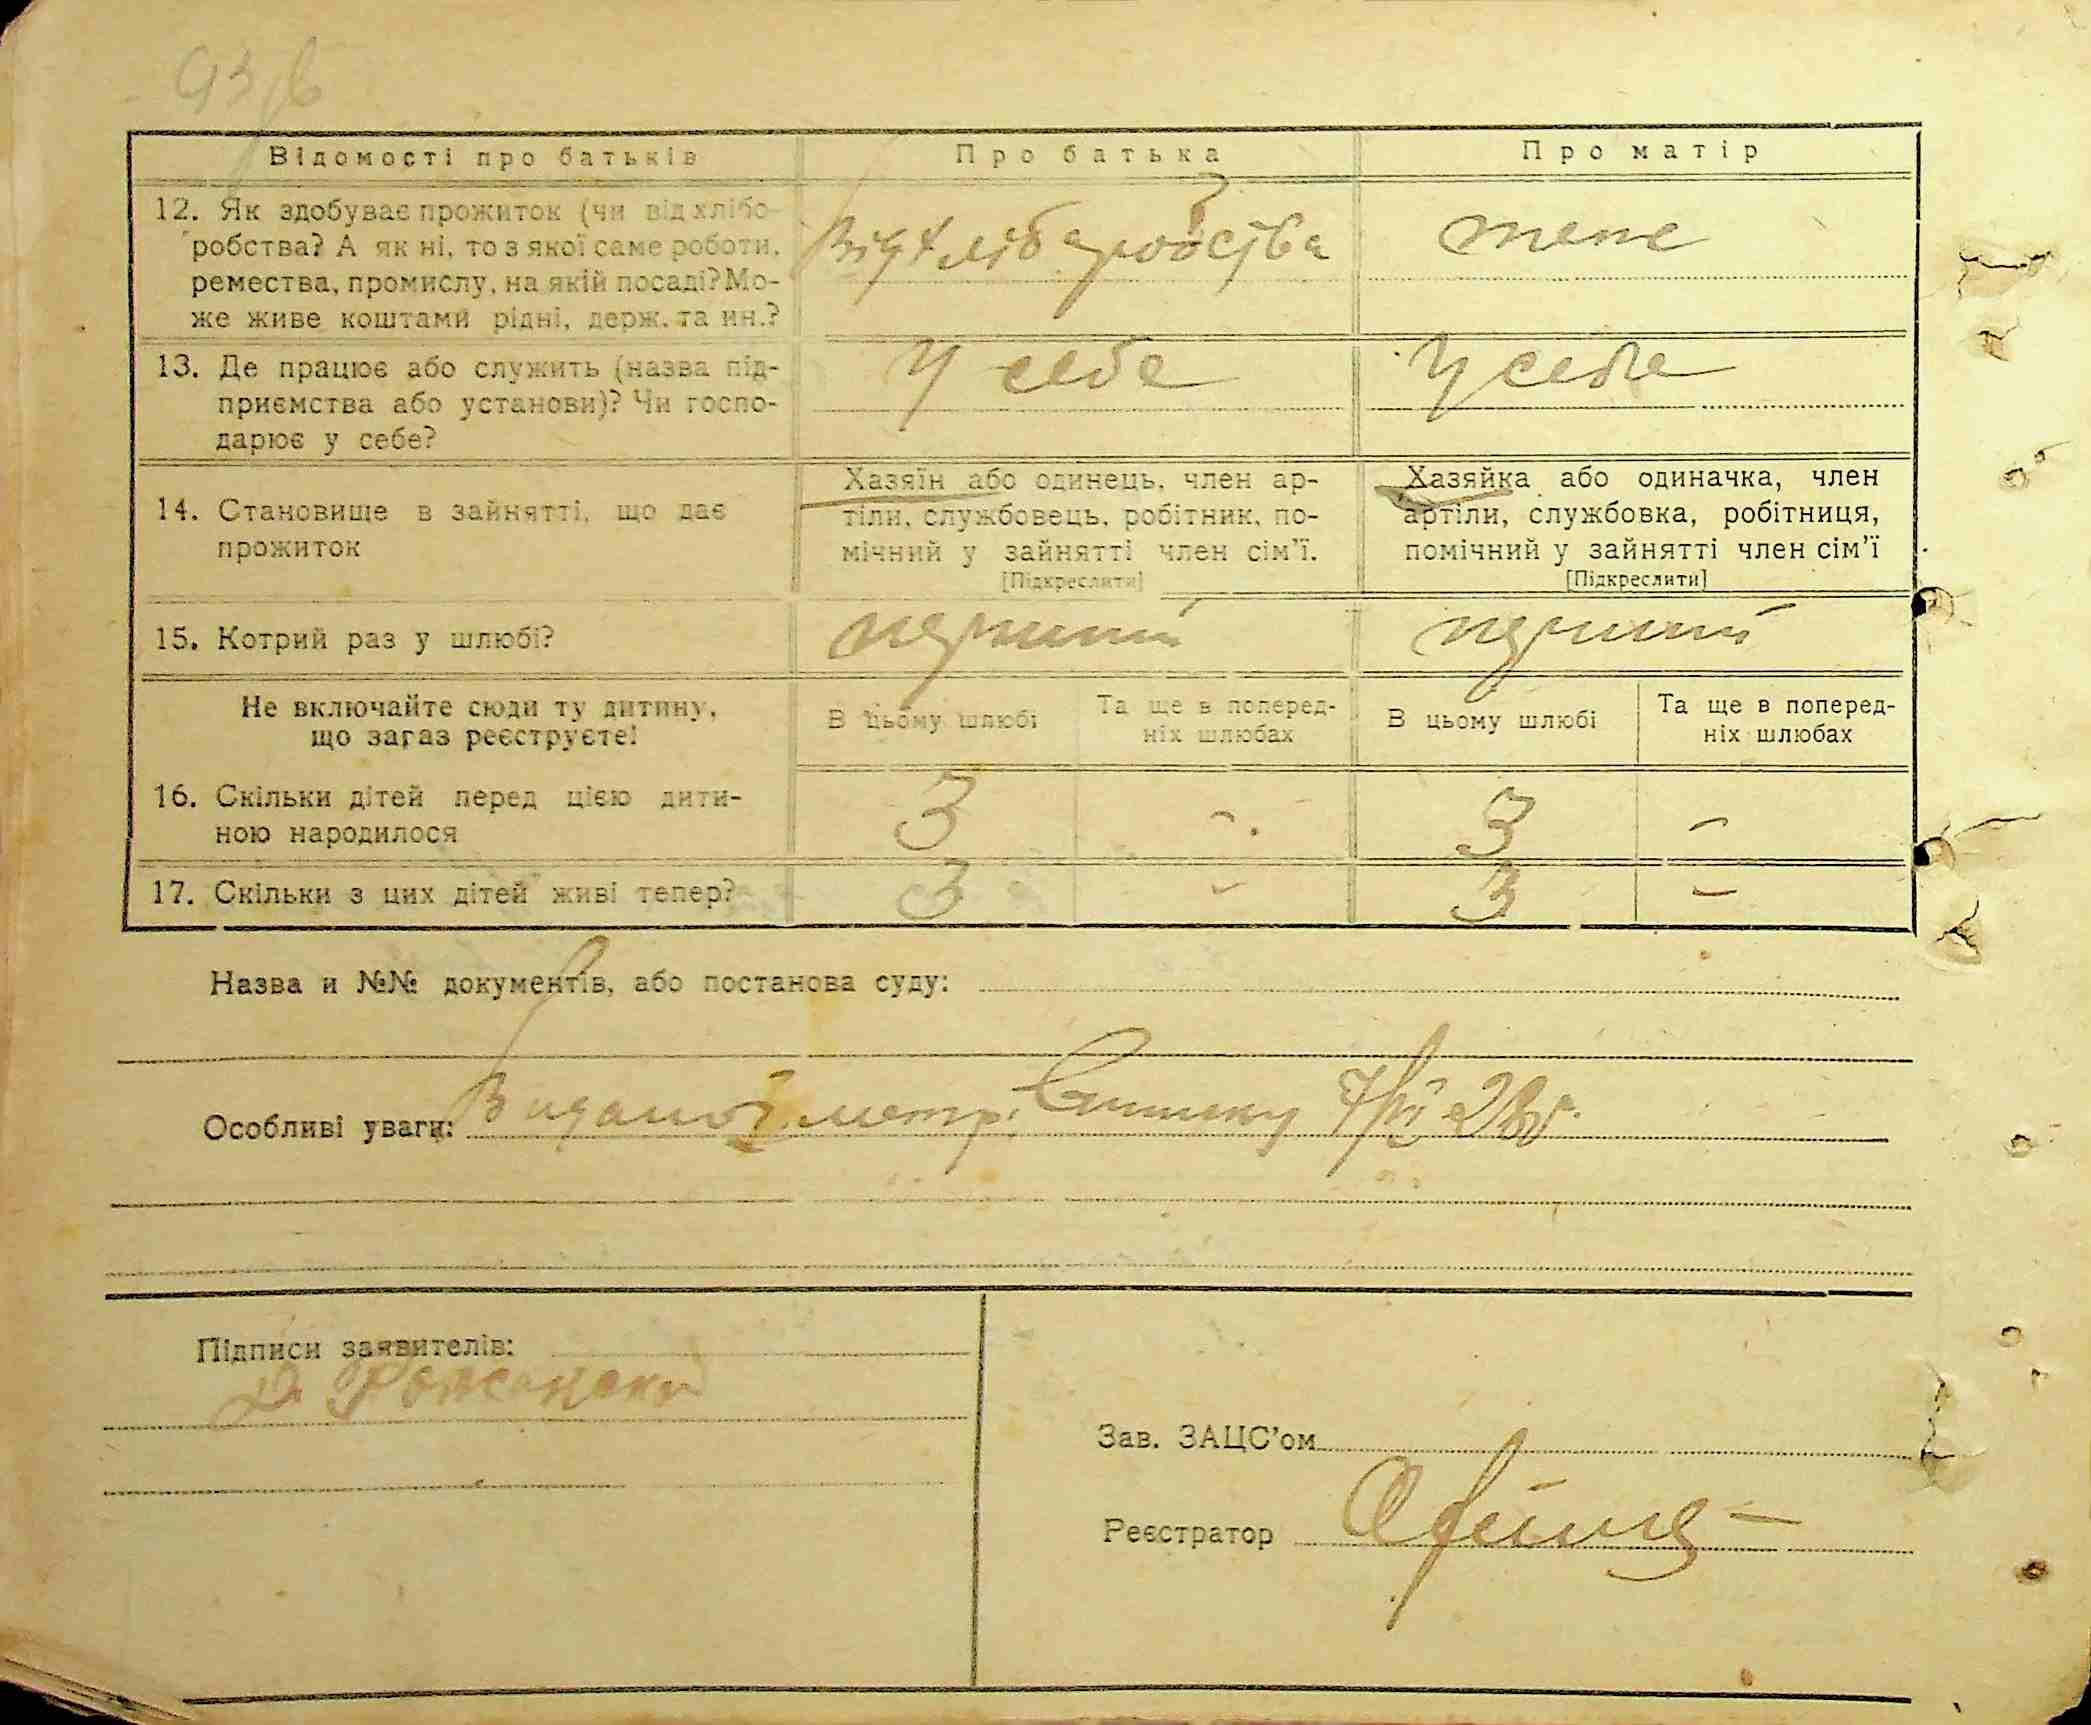 93
Відомості про батьків
Про батька
Про матір
12. Як здобуває прожиток (чи від хлібо-
робства? А як ні, то з якої саме роботи,
ремества, промислу, на якій посаді? Мо-
же живе коштами рідні, держ. та ин.?
Від хліборобства
теж
13. Де працює або служить (назва під-
приємства або установи)? Чи госпо-
дарює у себе?
У себе
У себе
14. Становище в зайнятті, що дає
прожиток
Хазяїн або одинець, член ар-
тіли, службовець, робітник, по-
мічний у зайнятті член сім'ї.
[Підкреслити]
Хазяйка або одиначка, член
артіли, службовка, робітниця,
помічний у зайнятті член сім'ї
[Підкреслити]
15. Котрий раз у шлюбі?
перший
перший
Не включайте сюди ту дитину,
що зараз реєструєте!
В цьому шлюбі
Та ще в поперед-
ніх шлюбах
В цьому шлюбі
Та ще в поперед-
ніх шлюбах
16. Скільки дітей перед цією дити-
ною народилося
3 - 3 -
17. Скільки з цих дітей живі тепер?
3 - 3 -
Назва и №№ документів, або постанова суду:
Особливі уваги: метр. 28р.
Підписи заявителів:
Зав. ЗАЦС'ом
Реєстратор